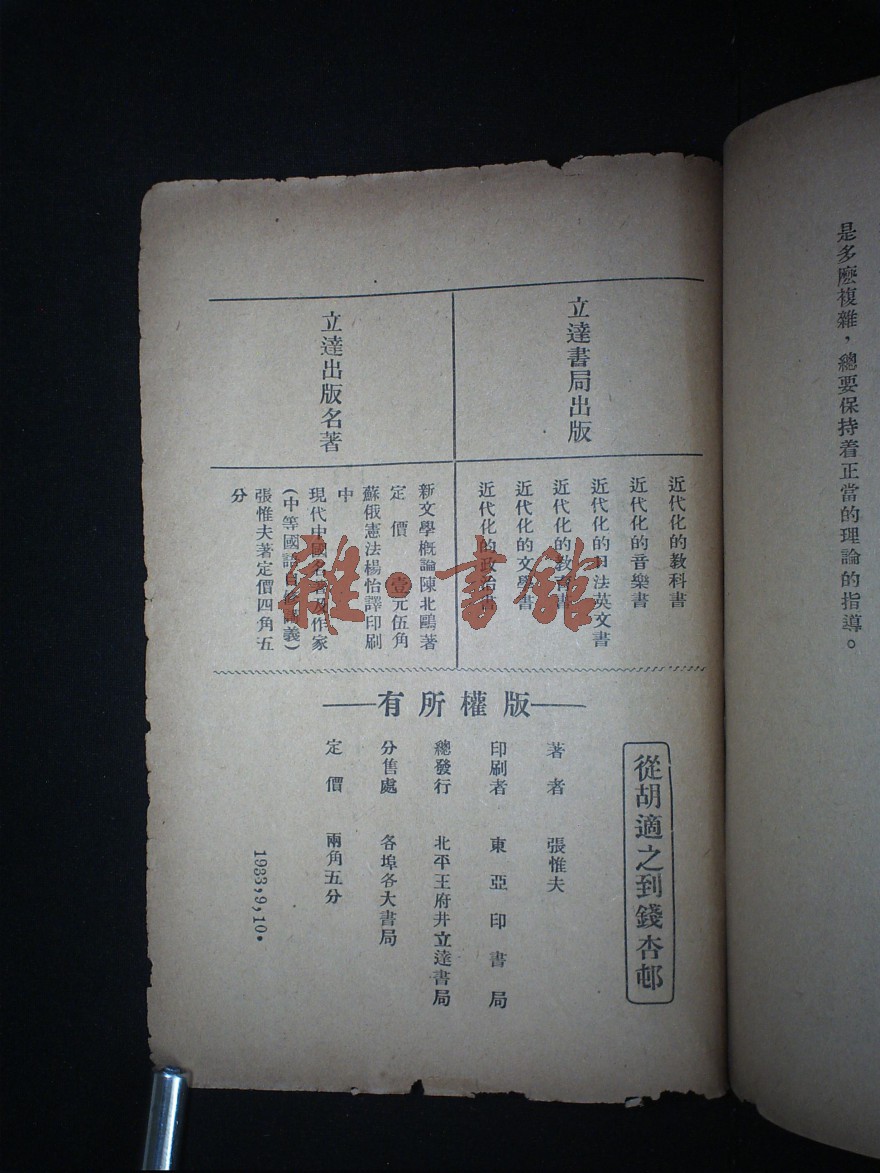 是多麽複雜，總要保持着正當的理論的指導。
立達書局出版
近代化的教科書
近代化的音樂書
近代化的 法英文書
近代化的教育書
近代化的文學書
近代化的政治書
立達出版名著
新文學概論陳北鷗著
定價 壹元伍角
蘇俄憲法楊怡譯印刷
中
現代中國名著及作家
(中等國語自修講義)
張惟夫著定價四角五
分
有所權版
從胡適之到錢杏邨
著者 張惟夫
印刷者 東亞印書局
總發行 北平王府井立達書局
分售處 各埠各大書局
定價 兩角五分
1933,9,10.
雜·書館